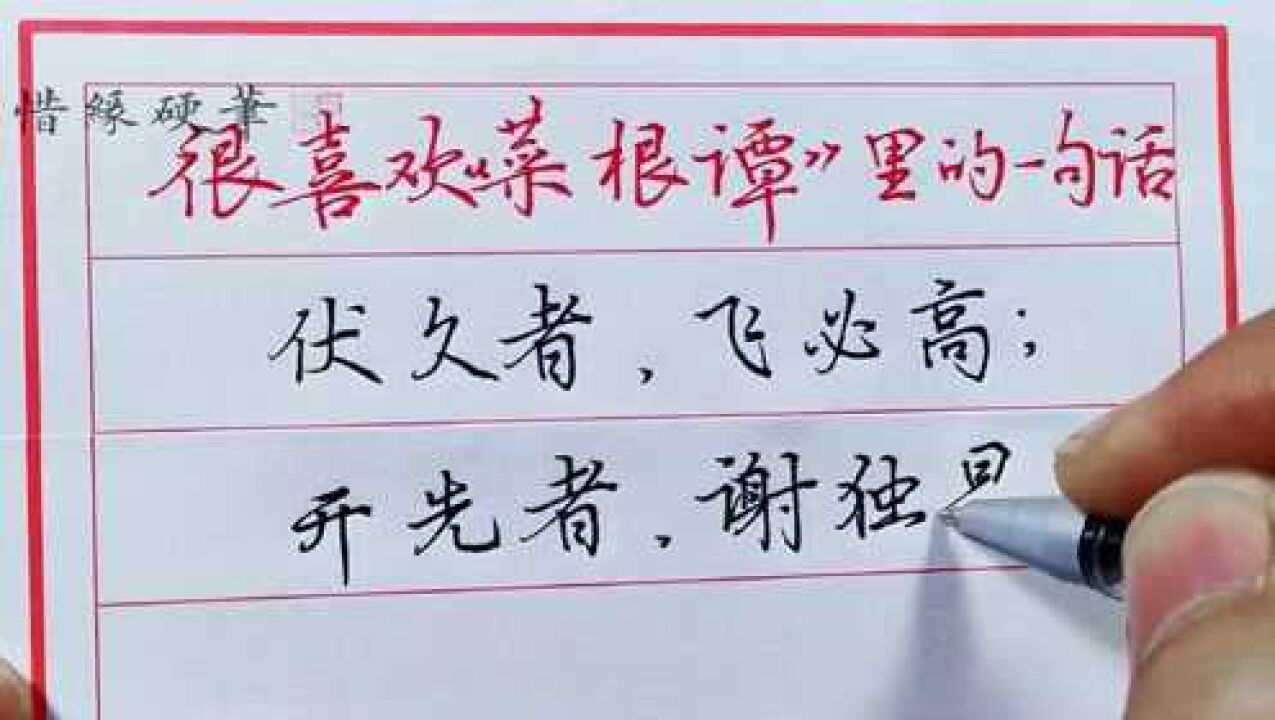 惜缘硬筆
很喜欢《菜根谭》里的一句话
伏久者，飞必高；
开先者，谢独